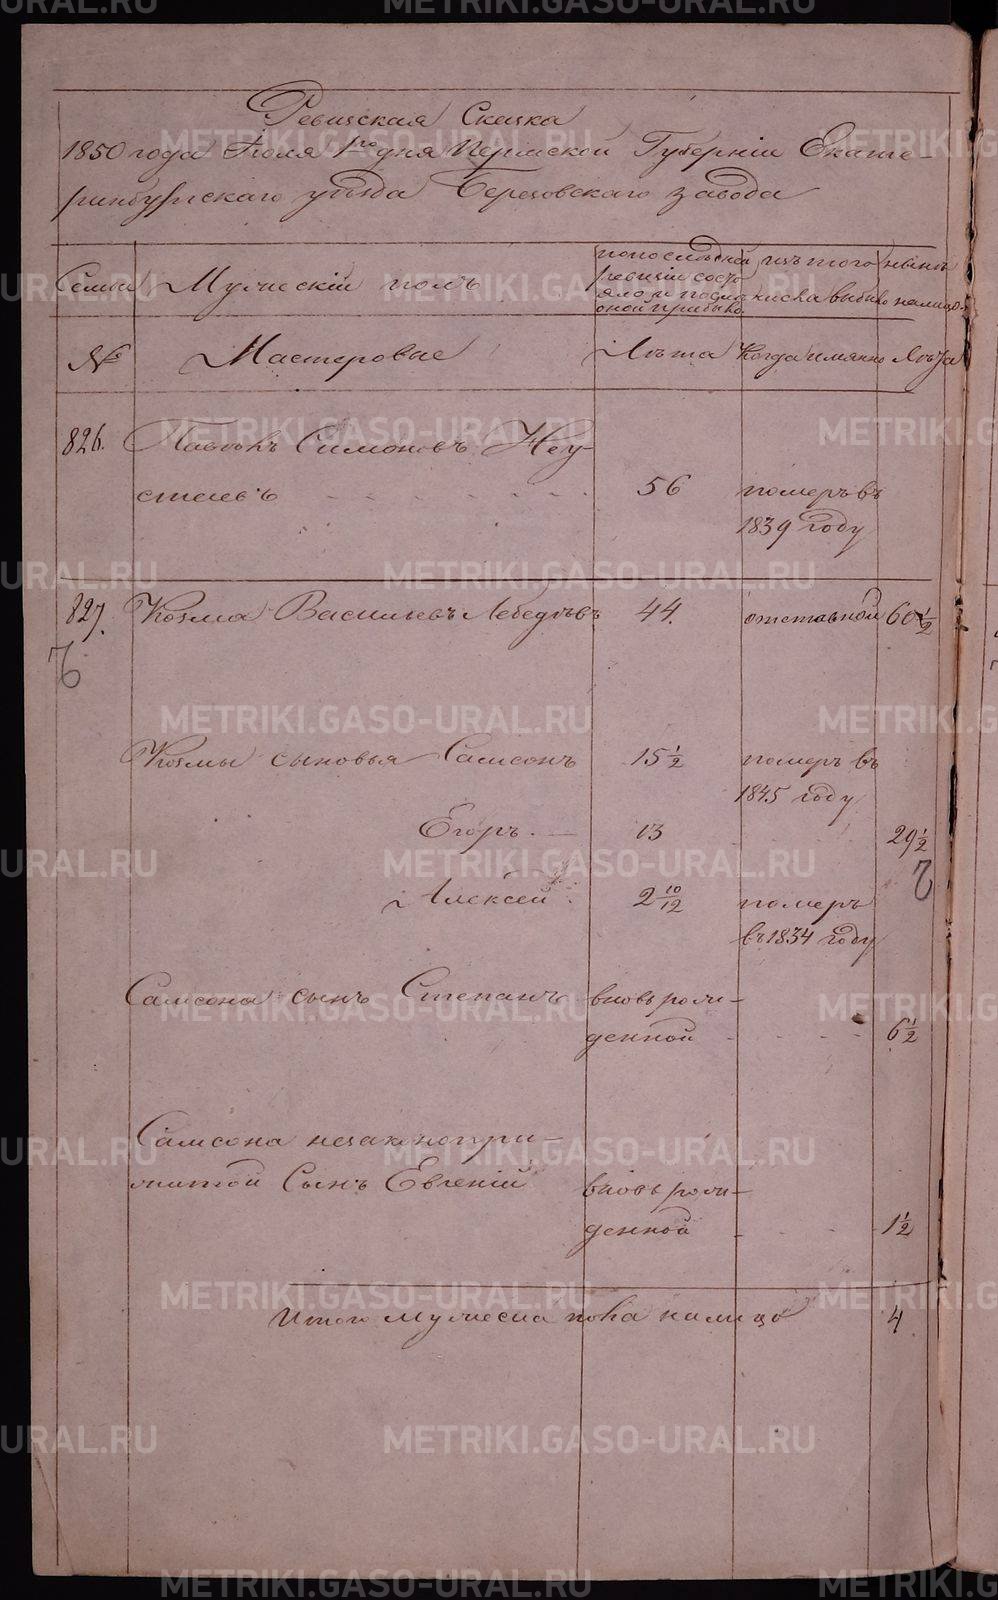 Ревизская Сказка
1850 года Июля 1го дня Пермской Губерніи Екате-
ринбургскаго уѣзда Березовскаго завода
Семьи
Мужескій полъ
по последней
ревизіи состо
яло и после
оной прибыло
изъ того
числа выбыло
нынѣ
налицо
№
Мастеровые
Лѣта
Когда имянно
Лѣта
826.
Павелъ Симоновъ Неу-
стиевъ
56
померъ въ
1839 году
827.
Козма Васильевъ Лебедѣвъ
44.
отставной
60 1/2
Козмы сыновья Самсонъ
15 1/2
померъ въ
1845 году
Егоръ
13
29 1/2
Алексей
2 10/12
померъ
въ 1834 году
Самсона сынъ Степанъ
вновь рож-
денной
6 1/2
Самсона незаконопри-
житой Сынъ Евгеній
вновь рож-
денной
1 1/2
Итого мужеска пола налицо
4
METRIKI.GASO-URAL.RU